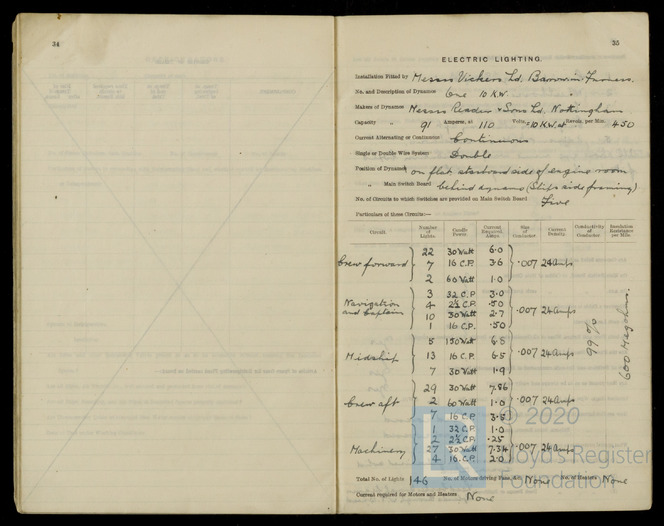 34
35
ELECTRIC LIGHTING.
Installation Fitted by Messrs Vickers Ld, Barrow in Furness.
No. and Description of Dynamos One 10 K.W.
Makers of Dynamos Messrs Reader & Sons Ld. Nottingham
Capacity " 91 Amperes, at 110 Volts, = 10 K.W. at Revols. per Min. 450
Current Alternating or Continuous Continuous
Single or Double Wire System Double
Position of Dynamos on flat starboard side of engine room
" Main Switch Board behind dynamo (Ships side framing)
No. of Circuits to which Switches are provided on Main Switch Board Five
Particulars of these Circuits:—
Circuit. Number of Lights. Candle Power. Current Required. Amps Size of Conductor. Current Density. Conductivity of Conductor. Insulation Resistance per Mile.
22 30 Watt 6.0
Crew forward 7 16 C.P. 3.6 .007 24 amps
2 60 Watt 1.0
3 32 C.P. 3.0
Navigation and Captain 4 2½ C.P. .50 .007 24 amps
10 30 Watt 2.7
1 16 C.P. .50
5 150 Watt 6.8
Midship 13 16 C.P. 6.5 .007 24 amps
7 30 Watt 1.9
99 %
600 Megohms.
29 30 Watt 7.86
Crew aft 2 60 Watt 1.0 .007 24 amps
7 16 C.P. 3.5
1 32 C.P. 1.0
2 2½ C.P. .25
Machinery 27 30 Watt 7.34 .007 24 amps
4 16 C.P. 2.0
Total No. of Lights 146 No. of Motors driving Fans, &c. None No. of Heaters None
Current required for Motors and Heaters None
© 2020
Lloyd's Register
Foundation